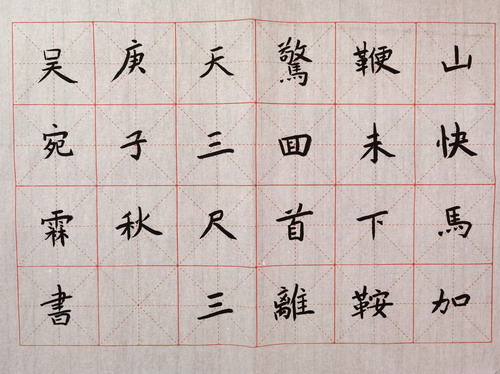 山快馬加
鞭未下鞍
驚回首離
天三尺三
庚子秋
吴宛霖書